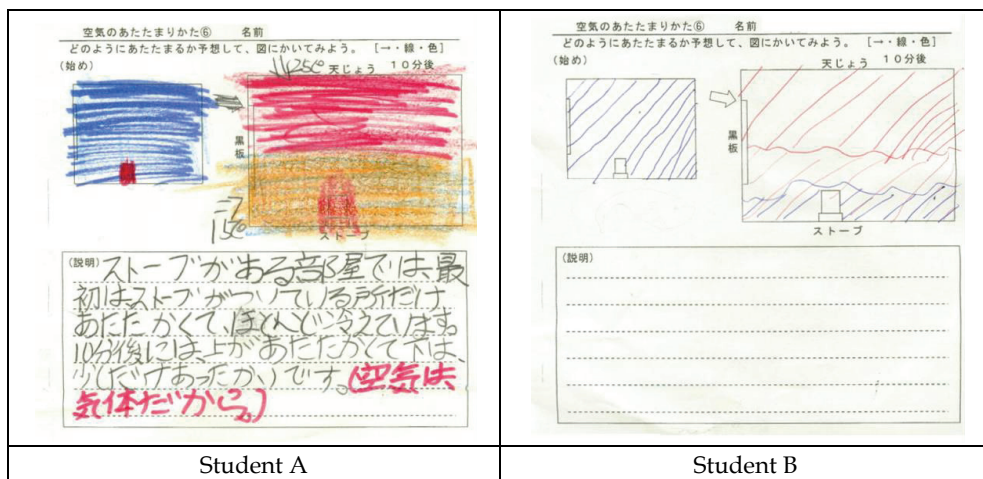 空気のあたたまりかた⑥ 名前
どのようにあたたまるか予想して、図にかいてみよう。 [→・線・色]
(始め)
25℃ 天じょう 10分後
黒板
15℃
ストーブ
(説明) ストーブがある部屋では、最
初は、ストーブがついている所だけ
あたたかくて、ほとんど冷えています。
10分後には、上があたたかくて下は、
少しだけあったかいです。(空気は、
気体だから。)
Student A
空気のあたたまりかた⑥ 名前
どのようにあたたまるか予想して、図にかいてみよう。 [→・線・色]
(始め)
天じょう 10分後
黒板
ストーブ
(説明)
Student B